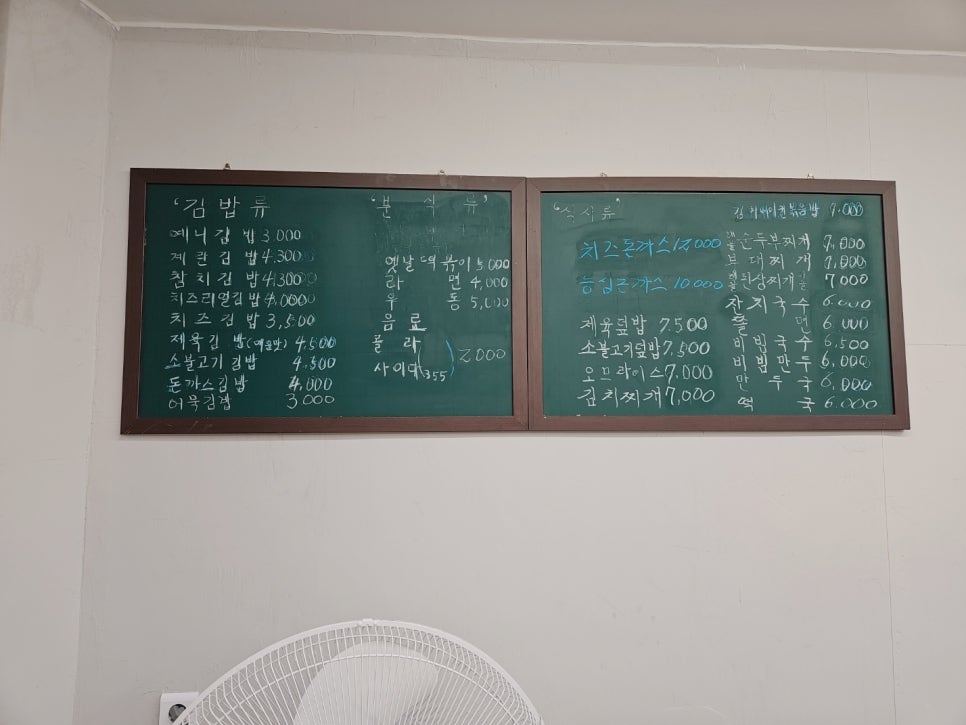 '김밥류
예니김밥 3,000
계란김밥 4,300
참치김밥 4,300
치즈리얼김밥 4,000
치즈김밥 3,500
제육김밥(매운맛) 4,500
소불고기김밥 4,500
돈까스김밥 4,000
어묵김밥 3,000
'분식류'
옛날떡볶이 5,000
라면 4,000
우동 5,000
음료
콜라
사이다 355 2000
'식사류'
치즈돈까스 12,000
등심돈까스 10,000
제육덮밥 7,500
소불고기덮밥 7,500
오므라이스 7,000
김치찌개 7,000
김치베이컨볶음밥 7,000
순두부찌개 7,000
부대찌개 7,000
된장찌개 7,000
잔치국수 6,000
쫄면 6,000
비빔국수 6,500
비빔만두 6,000
만두국 6,000
떡국 6,000